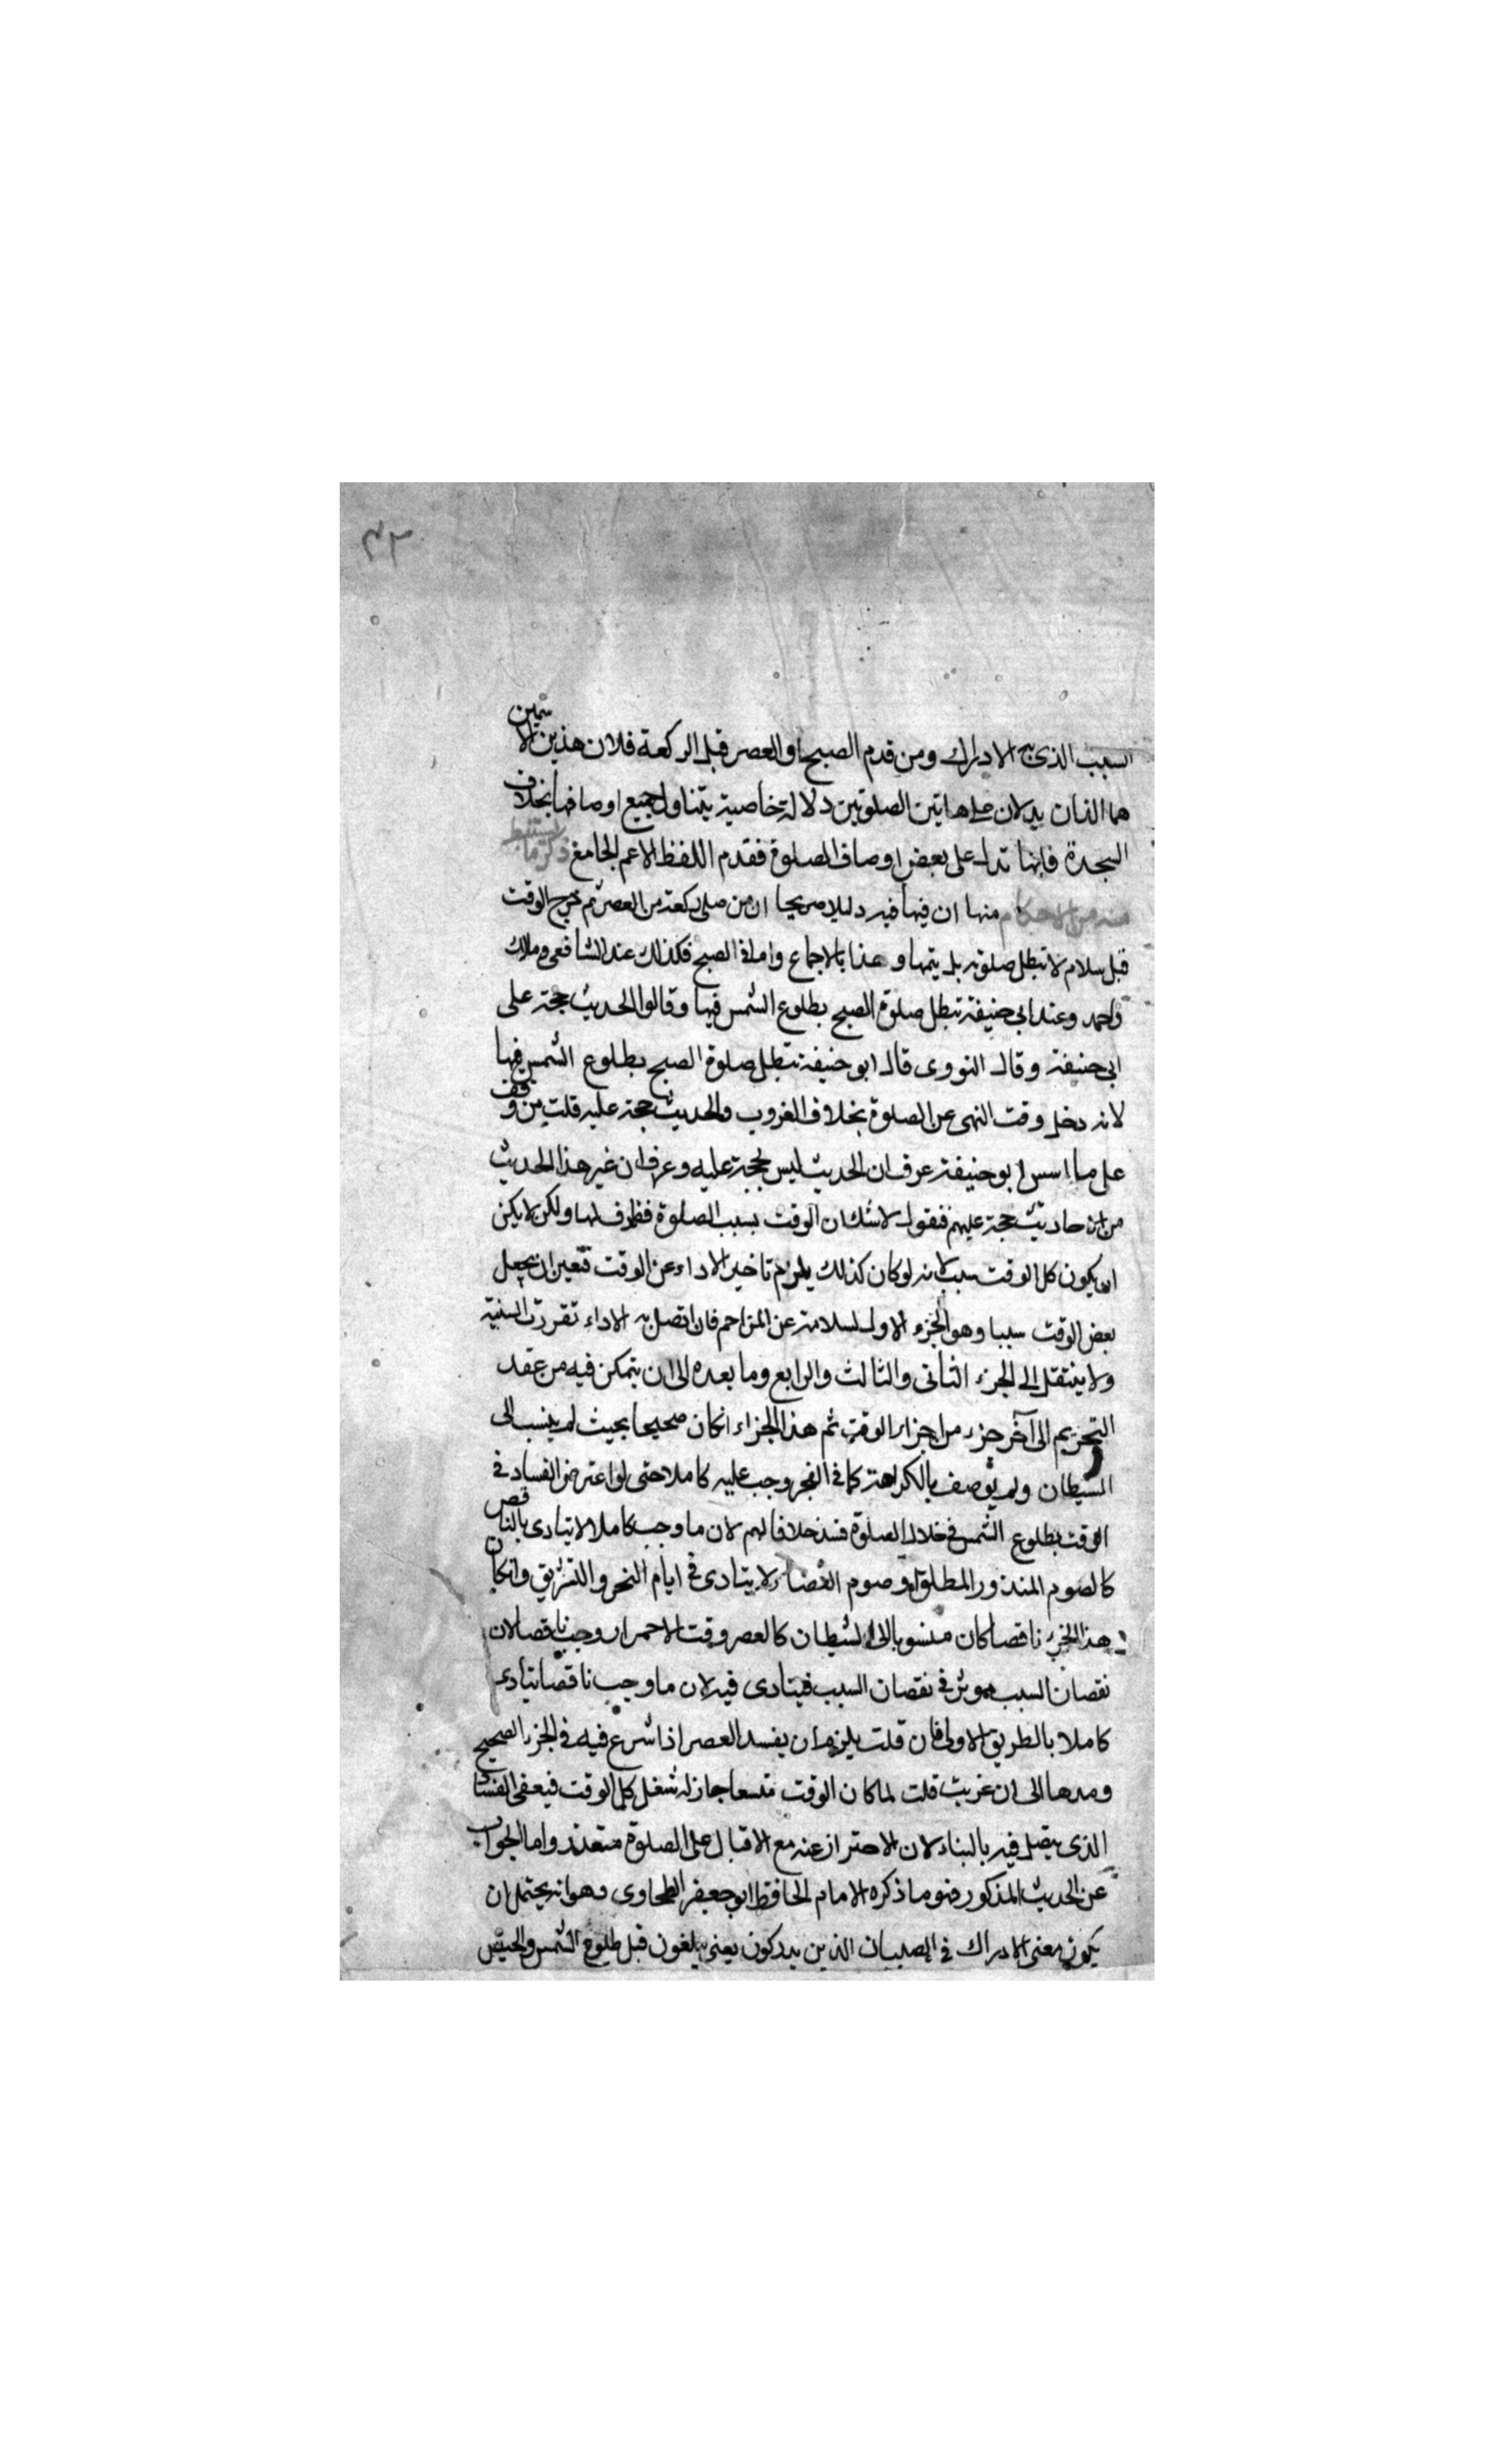 ٣٢
السبب الذى به الادراك ومن قدم الصبح او العصر قبل الركعة فلان هذين الاسمين
هما اللذان يدلان على هاتين الصلوتين دلالة خاصية يتناول جميع اوصافها بخلاف
السجدة فانها تدل على بعض اوصاف الصلوة فقدم اللفظ الاعم الجامع ذكر ما يستنبط
منه من الاحكام منها ان فيها فيه دليلا صريحا ان من صلى ركعة من العصر ثم خرج الوقت
قبل سلام لا تبطل صلوته بل يتمها وهذا بالاجماع واما فى الصبح فكذلك عند الشافعى ومالك
واحمد وعند ابى حنيفة تبطل صلوة الصبح بطلوع الشمس فيها وقالوا الحديث حجة على
ابى حنيفة وقال النووى قال ابو حنيفة تبطل صلوة الصبح بطلوع الشمس فيها
لانه دخل وقت النهى عن الصلوة بخلاف الغروب والحديث حجة عليه قلت من وقف
على ما اسس ابو حنيفة عرف ان الحديث ليس بحجة عليه وعرف ان غير هذا الحديث
من الاحاديث حجة عليهم فنقول لا شك ان الوقت سبب الصلوة فظرف لها ولكن لا يكن
ان يكون كل الوقت سببا لانه لو كان كذلك يلزم تاخير الاداء عن الوقت فتعين ان يجعل
بعض الوقت سببا وهو الجزء الاول لسلامته عن المزاحم فان اتصل به الاداء تقررت السببية
ولا ينتقل الى الجزء الثانى والثالث والرابع وما بعده الى ان يتمكن فيه من عقد
التحريم الى آخر جزء من اجزاء الوقت ثم هذا الجزاء ان كان صحيحا بحيث لم ينسب الى
الشيطان ولم يوصف بالكراهة كما فى الفجر وجب عليه كاملا حتى لو اعترض الفساد فى
الوقت بطلوع الشمس فى خلال الصلوة فسد خلافا لهم لان ما وجب كاملا لا يتادى بالناقص
كالصوم المنذور المطلق او صوم القضاء لا يتادى فى ايام النحر والتشريق وان كان
هذا الجزء ناقصا كان منسوبا الى الشيطان كالعصر وقت الاحمرار وجب ناقصا لان
نقصان السبب موثر فى نقصان السبب فيتادى فيه لان ما وجب ناقصا يتادى
كاملا بالطريق الاولى فان قلت يلزم ان يفسد العصر اذا شرع فيه فى الجزء الصحيح
ومدها الى ان غربت قلت لما كان الوقت متسعا جاز له شغل كل الوقت فيعفى الفساد
الذى يتصل فيه بالبناء لان الاحتراز عنه مع الاقبال على الصلوة متعذر واما الجواب
عن الحديث المذكور فهو ما ذكره الامام الحافظ ابو جعفر الطحاوى وهو انه يحتمل ان
يكون معنى الادراك فى الصبيان الذين يدركون يعنى يبلغون قبل طلوع الشمس والحيض